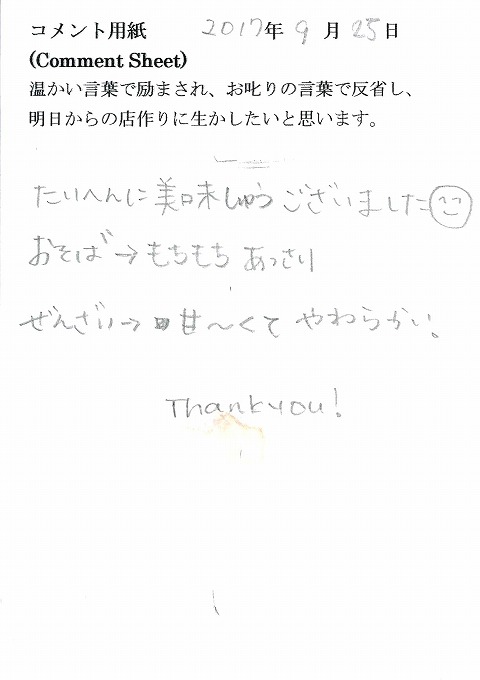 コメント用紙 2017年 9月 25日
(Comment Sheet)
温かい言葉で励まされ、お叱りの言葉で反省し、
明日からの店作りに生かしたいと思います。
たいへんに美味しゅうございました
おそば→もちもち あっさり
ぜんざい→甘〜くて やわらかい。
Thank you!